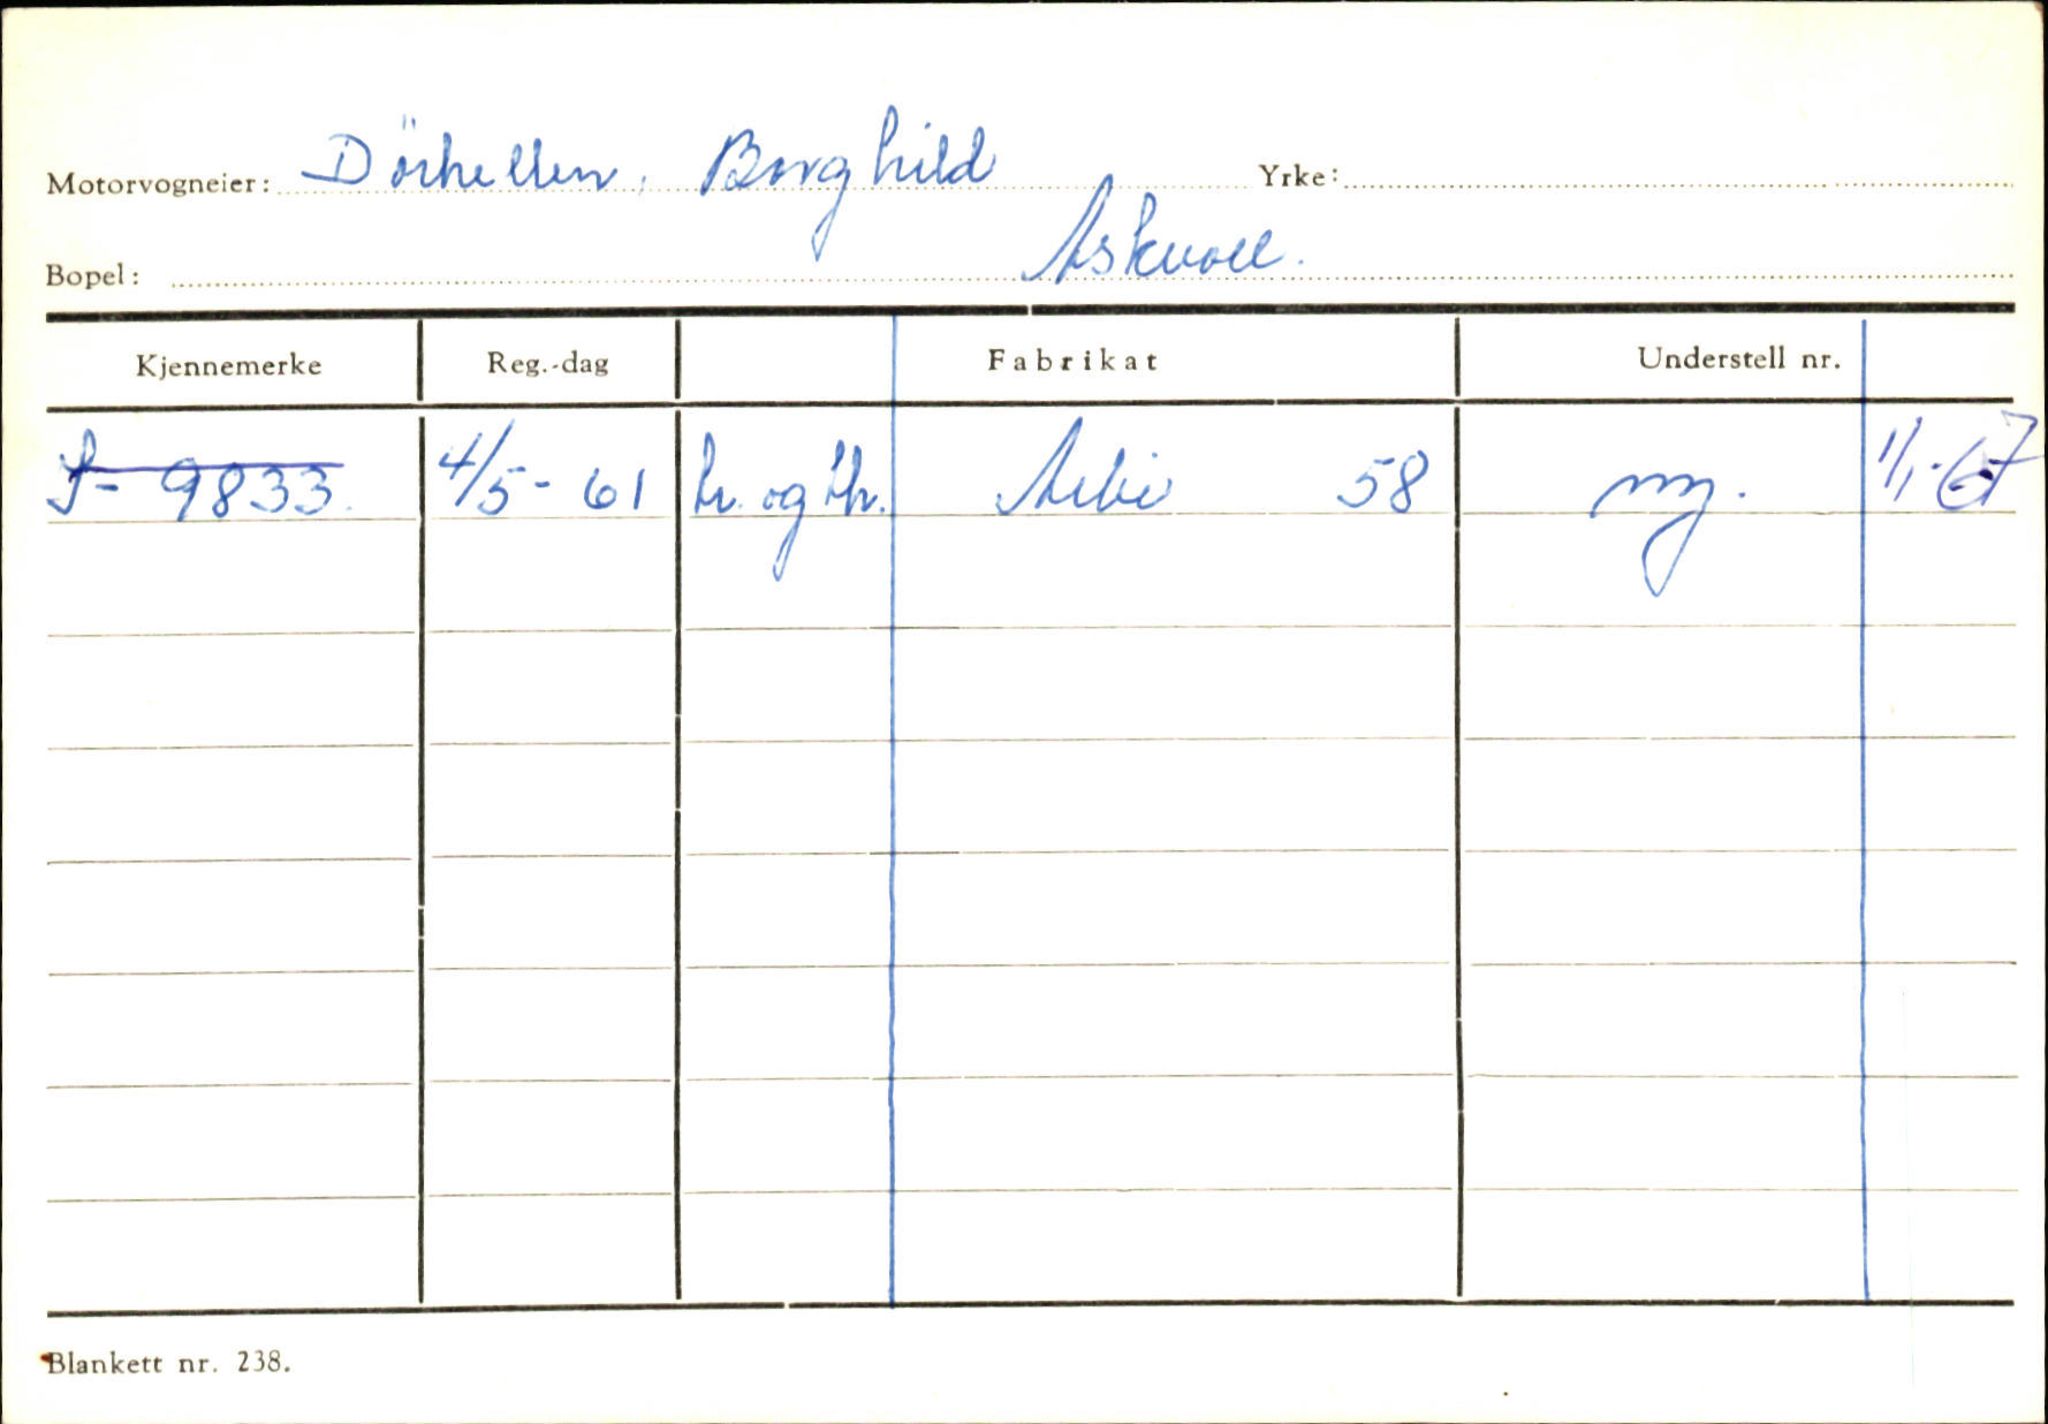 Motorvogneier: Dörhellen, Borghild Yrke:
Bopel: Askvoll.
Kjennemerke Reg.-dag Fabrikat Understell nr.
S- 9833. 4/5-61 og 58 ny. 1/1-67
Blankett nr. 238.